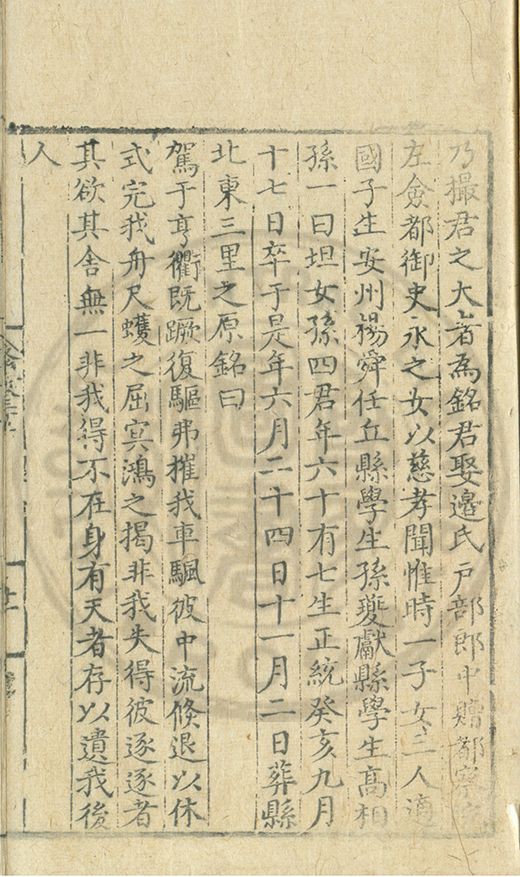 乃撮君之大者爲銘君娶邊氏戶部郎中贈都察院
左僉都御史永之女以慈孝聞惟時一子女三人適
國子生安州楊舜任丘縣學生孫夔獻縣學生高相
孫一曰坦女孫四君年六十有七生正統癸亥九月
十七日卒于是年六月二十四日十一月二日葬縣
北東三里之原銘曰
駕于亨衢旣蹶復驅弗摧我車颿彼中流倐退以休
式完我舟尺蠖之屈冥鴻之揭非我失得彼逐逐者
其欲其舍無一非我得不在身有天者存以遺我後
人